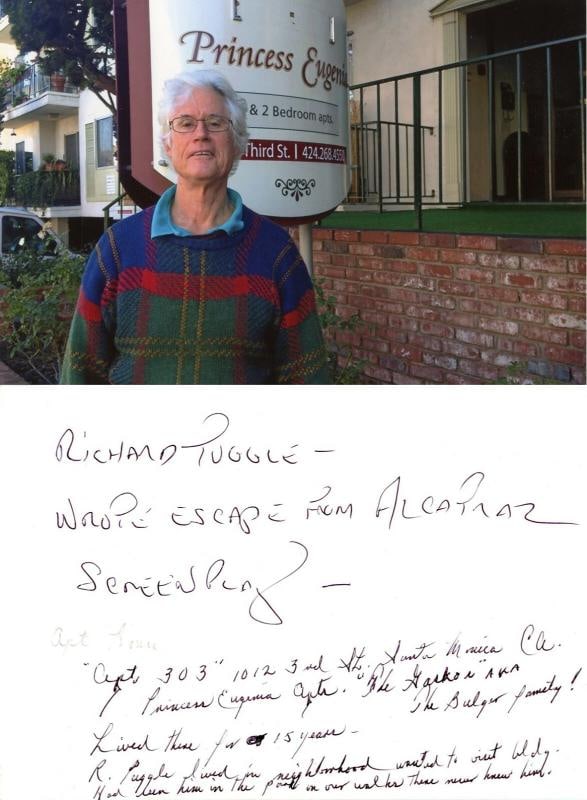 Princess Eugenia
& 2 Bedroom apts.
Third St. | 424.268.455
RICHARD TUGGLE –
WROTE ESCAPE FROM ALCATRAZ
SCREENPLAY –
Apt
"Apt. 303" 1012 3rd St. Santa Monica CA.
Princess Eugenia Apts. "The Gaskos" AKA
The Bulger family!
Lived there for 15 years –
R. Tuggle lived in neighborhood wanted to visit bldg.
Had seen him in the park on our walks there never knew him.